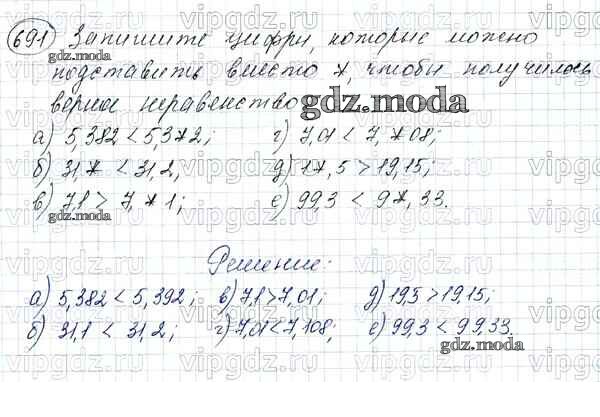 691 Запишите цифры, которые можно
подставить вместо *, чтобы получилось
верное неравенство
а) 5,382 < 5,3*2; г) 7,01 < 7,*08;
б) 31,* < 31,2; д) 1*,5 > 19,15;
в) 7,1 > 7,*1; е) 99,3 < 9*,33.
Решение:
а) 5,382 < 5,392; в) 7,1 > 7,01; д) 19,5 > 19,15;
б) 31,1 < 31,2; г) 7,01 < 7,108; е) 99,3 < 99,33.
gdz.moda
gdz.moda
gdz.moda
gdz.moda
vipgdz.ru